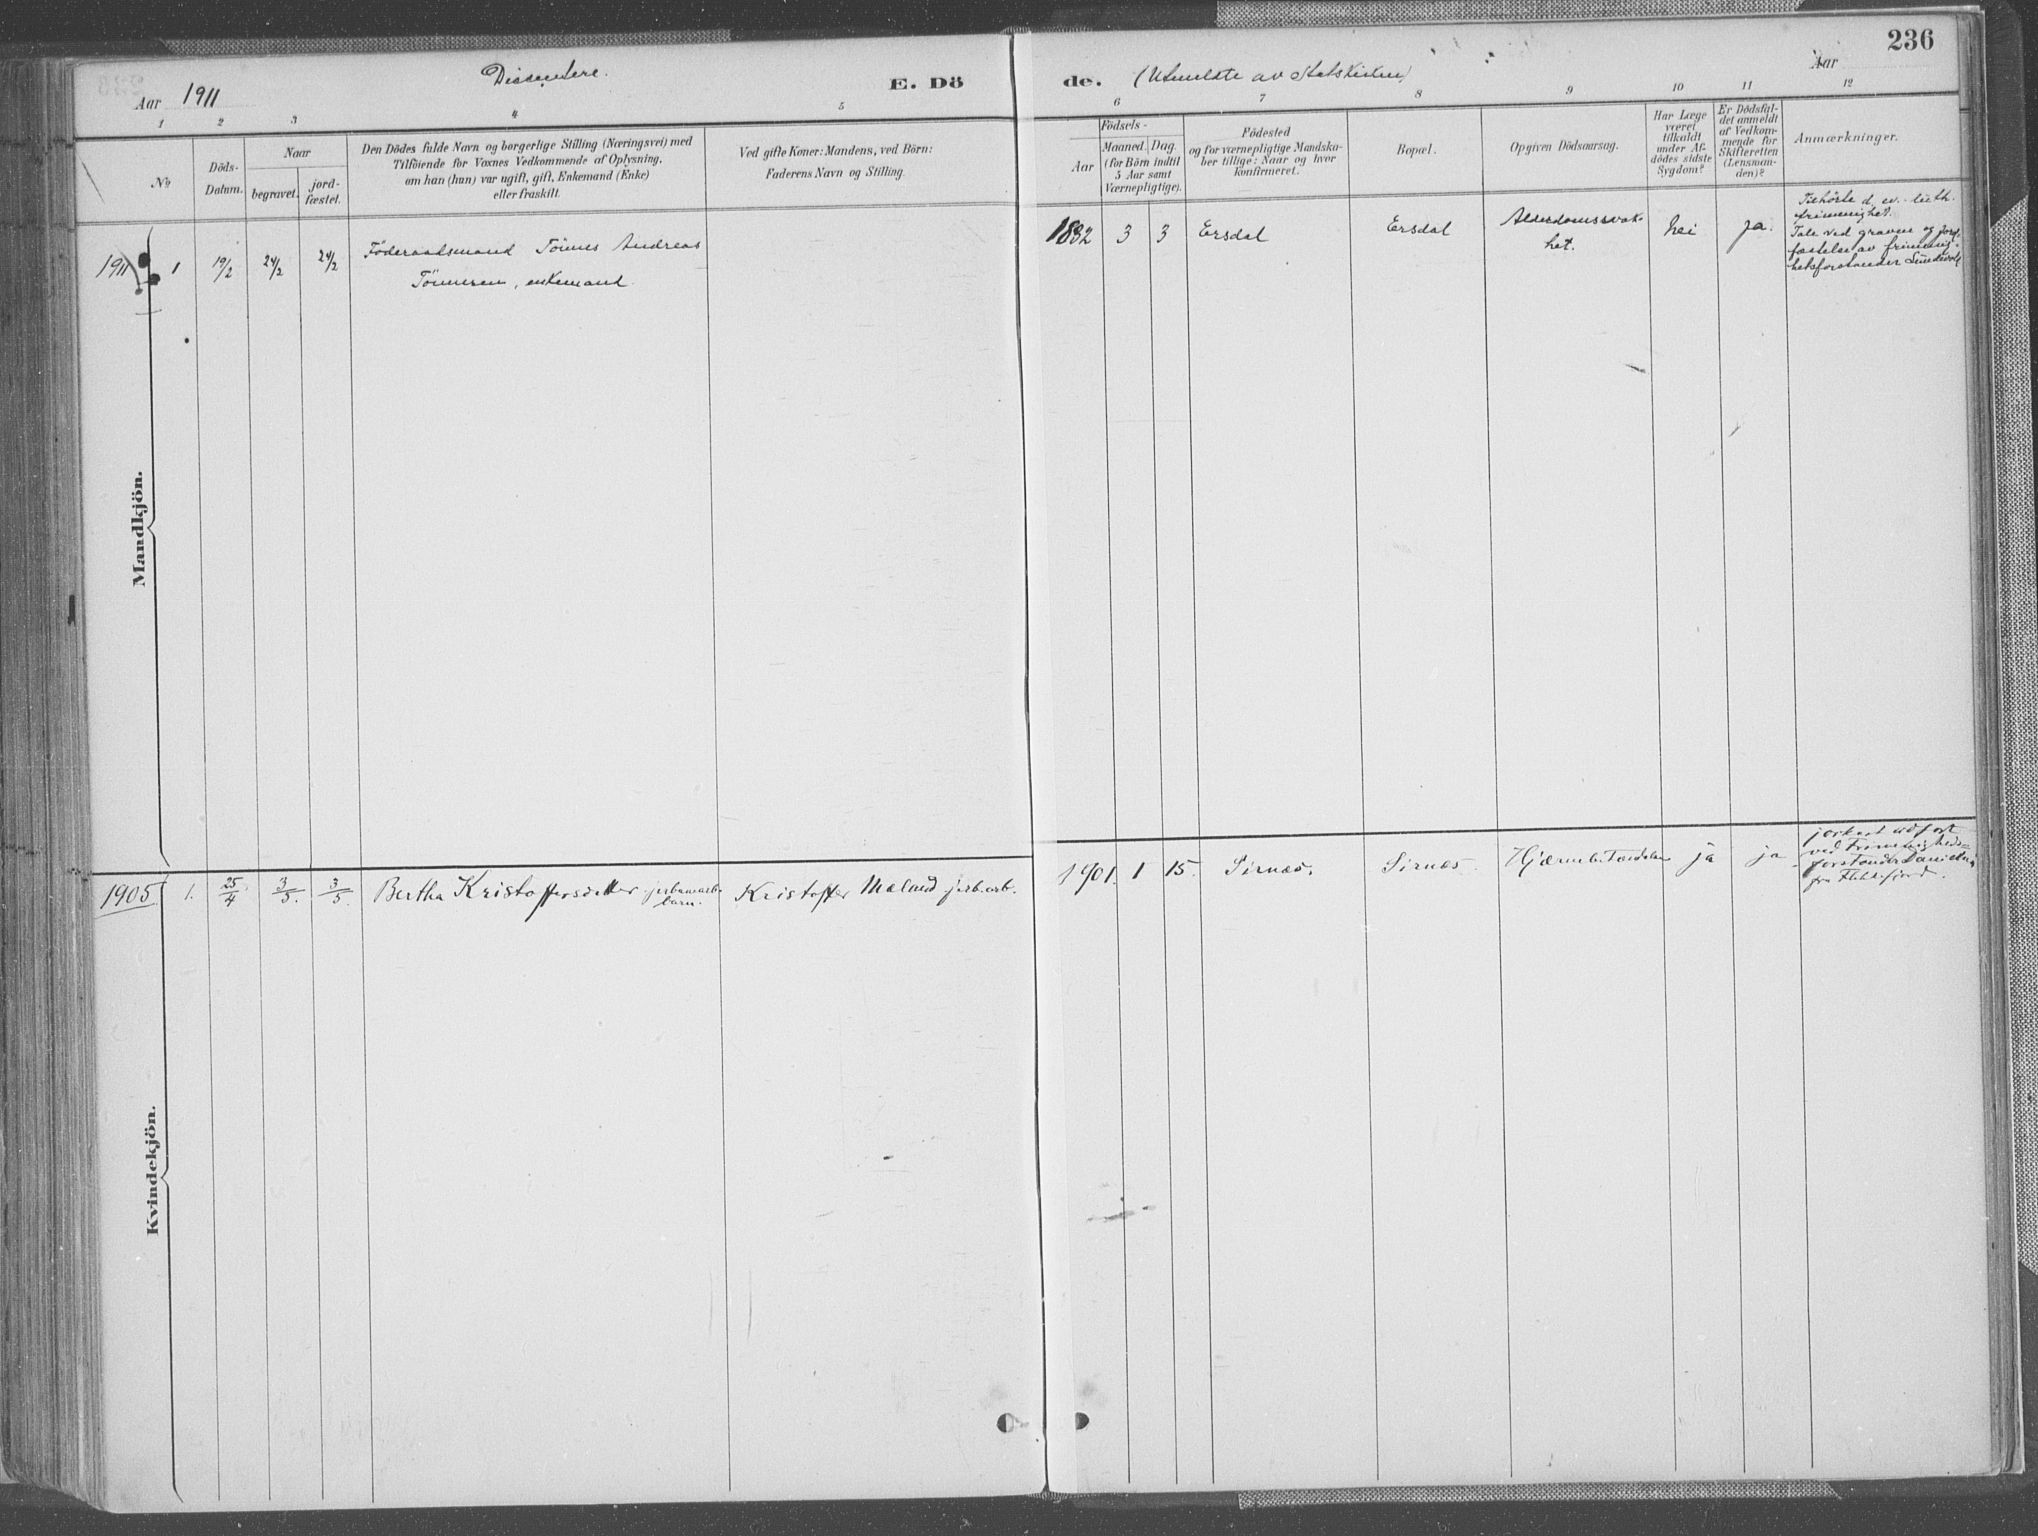 236
Dissentere.
E. Dö
de. (Utmeldte av Statskirken)
Aar 1911
Aar
1 2 3 4 5 6 7 8 9 10 11 12
No
Döds-
Datum.
Naar
begravet.
jord-
fæstet.
Den Dödes fulde Navn og borgerlige Stilling (Næringsvei) med
Tilföiende for Voxnes Vedkommende af Oplysning,
om han (hun) var ugift, gift, Enkemand (Enke)
eller fraskilt.
Ved gifte Koner: Mandens, ved Börn:
Faderens Navn og Stilling.
Födsels-
Aar
Maaned.
Dag.
(for Börn indtil
5 Aar samt
Værnepligtige).
Födested
og for værnepligtige Mandska-
ber tillige: Naar og hvor
konfirmeret.
Bopæl.
Opgiven Dödsaarsag.
Har Læge
været
tilkaldt
under Af-
dödes sidste
Sygdom?
Er Dödsfal-
det anmeldt
af Vedkom-
mende for
Skifteretten
(Lensman-
den)?
Anmærkninger.
Mandkjön.
1911 1 19/2 24/2 24/2 Föderaadsmand Tönnes Andreas
Tönnesen, enkemand.
1832 3 3 Ersdal Ersdal Alderdomssvak-
het.
nei ja.
Tilhörte d. ev.-luth.
frimenighet.
Tale ved graven og jord-
fæstelse av frimenig-
hetsforstander
Kvindekjön.
1905 1. 25/4 3/5. 3/5. Bertha Kristoffersdatter jerbanearb.
barn.
Kristoffer Mæland jerb.arb.
1901. 1 15. Sirnæs. Sirnæs. ja ja
ved Frimenigheds=
forstander Danielsen
fra Flekkefjord.